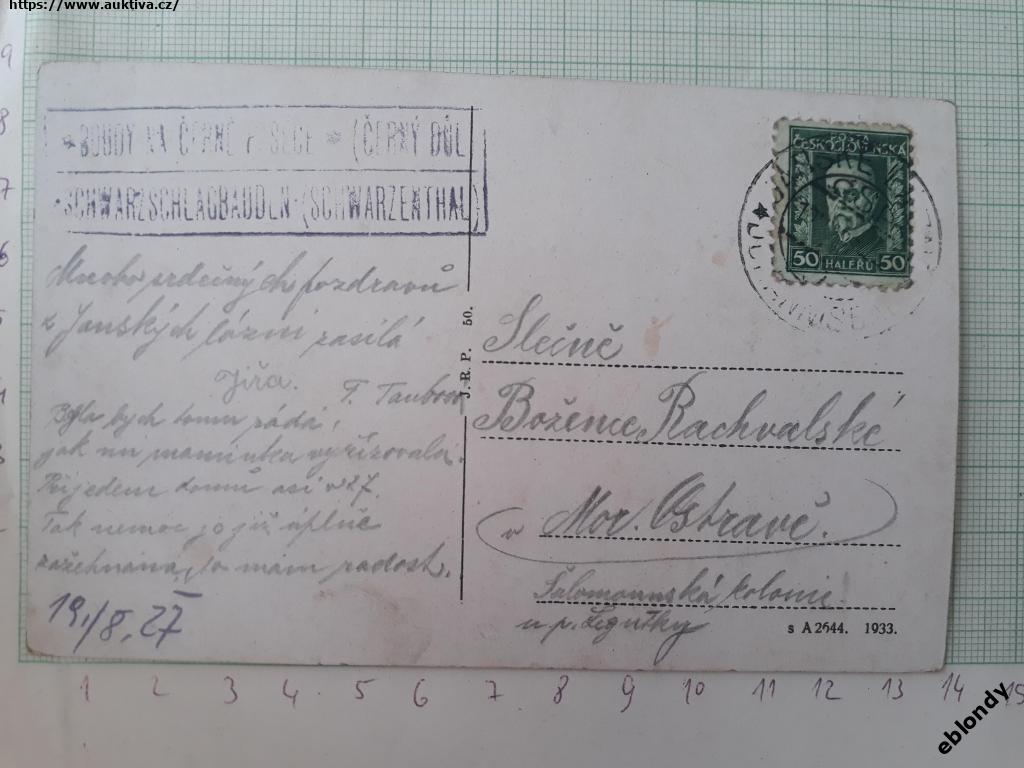 https://www.auktiva.cz/
BOUDY NA ČERNÉ PASECE * (ČERNÝ DŮL
SCHWARZSCHLAGBAUDEN (SCHWARZENTHAL)
Mnoho srdečných pozdravů
z Janských lázní zasílá
Jiřa.
Byla bych tomu ráda,
jak mi maminka vyřizovala.
Přijedem domů asi v 27.
Tak nemoc je již úplně
zažehnána, to mám radost.
19./8. 27
J. R. P. 50.
ČESKOSLOVENSKÁ
50 HALÉŘŮ 50
Slečně
Božence Rachvalské
v Mor. Ostravě.
Šalomounská kolonie
u p. Legutky
s A 2644. 1933.
9
8
7
6
1 2 3 4 5 6 7 8 9 10 11 12 13 14 15
eblondy